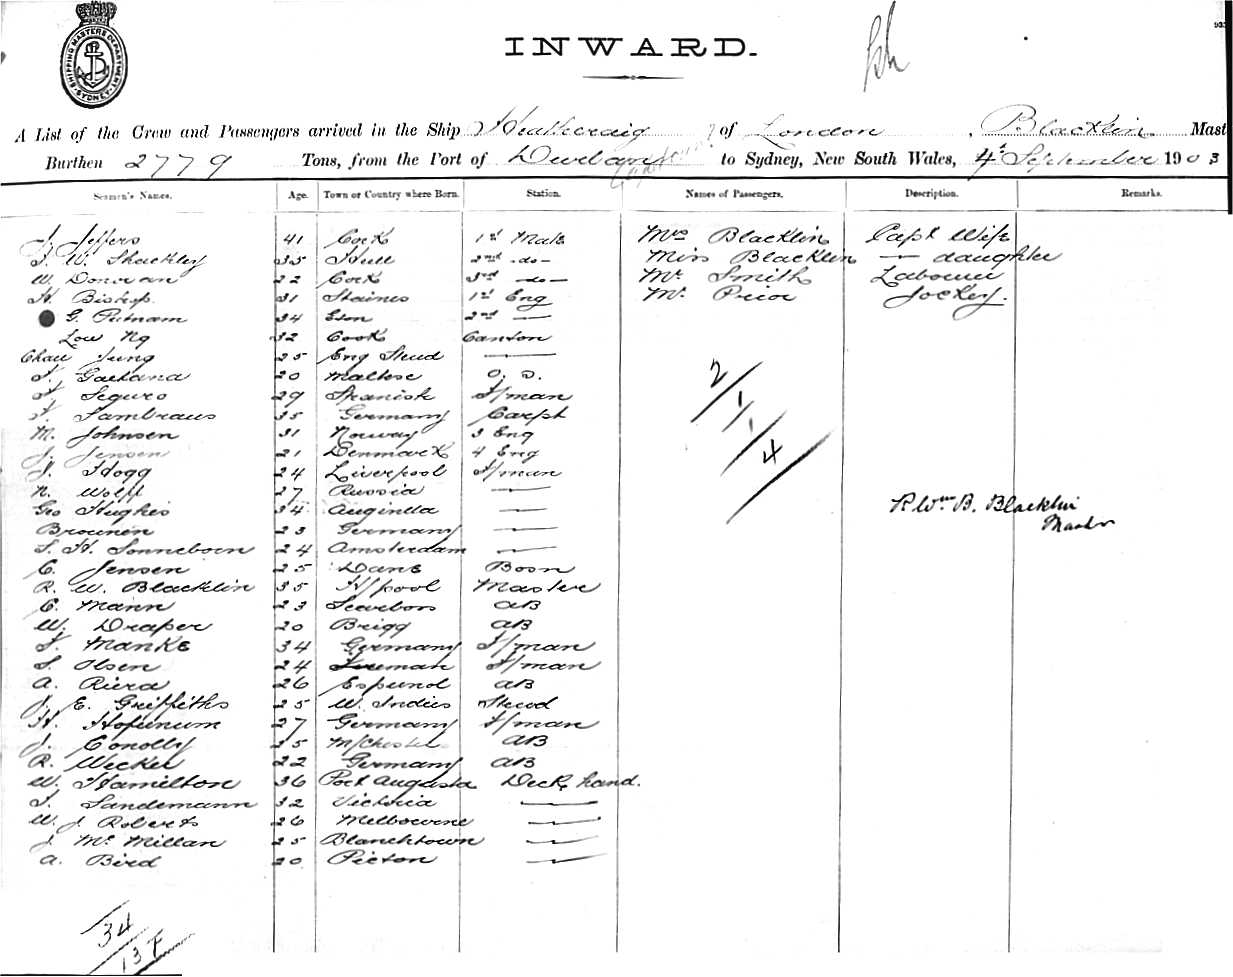 SHIPPING MASTERS DEPARTMENT
SYDNEY
INWARD.
A List of the Crew and Passengers arrived in the Ship Heathcraig of London, Blacklin Mast
Burthen 2779 Tons, from the Port of Durban to Sydney, New South Wales, 4th September 1903
Seamen's Names. Age. Town or Country where Born. Station. Names of Passengers. Description. Remarks.
J. Jeffers 41 Cork 1st Mate Mrs Blacklin Capt Wife
J. W. Shackley 35 Hull 2nd -do- Miss Blacklin — daughter
W. Donovan 22 Cork 3rd -do- Mr Smith Labourer
H. Bishop 31 Staines 1st Eng Mr Prior Jockey.
G. Putnam 34 Eton 2nd —
Low Ng 32 Cook Canton
Chau Jung 25 Eng Steud —
J. Gaetana 20 Maltese O. S.
F. Seguro 29 Spanish F/man
F. Tambraus 35 Germany Carpt
M. Johnsen 31 Norway 3 Eng
J. Jensen 21 Denmark 4 Eng
J. Hogg 24 Liverpool F/man
N. Wolff 27 Russia —
Geo Hughes 34 —
Brounen 23 Germany —
S. H. Sonneborn 24 Amsterdam —
C. Jensen 25 Dane Bosn
R. W. Blacklin 35 H/pool Master
C. Mann 23 Scarboro AB
W. Draper 20 Brigg AB
F. Manke 34 Germany F/man
S. Olsen 24 F/man
A. Riera 26 Espunol AB
J. E. Griffiths 25 W. Indies Steud
H. Hofunum 27 Germany F/man
J. Conolly 25 M/chester AB
R. Wecker 22 Germany AB
W. Hamilton 36 Port Augusta Deck hand.
T. Sandemann 32 Victoria —
W. J. Roberts 26 Melbourne —
J. McMillan 25 Blanchtown —
A. Bird 20 Picton —
2/1/1/4
R Wm B. Blacklin
Master
34
13 F